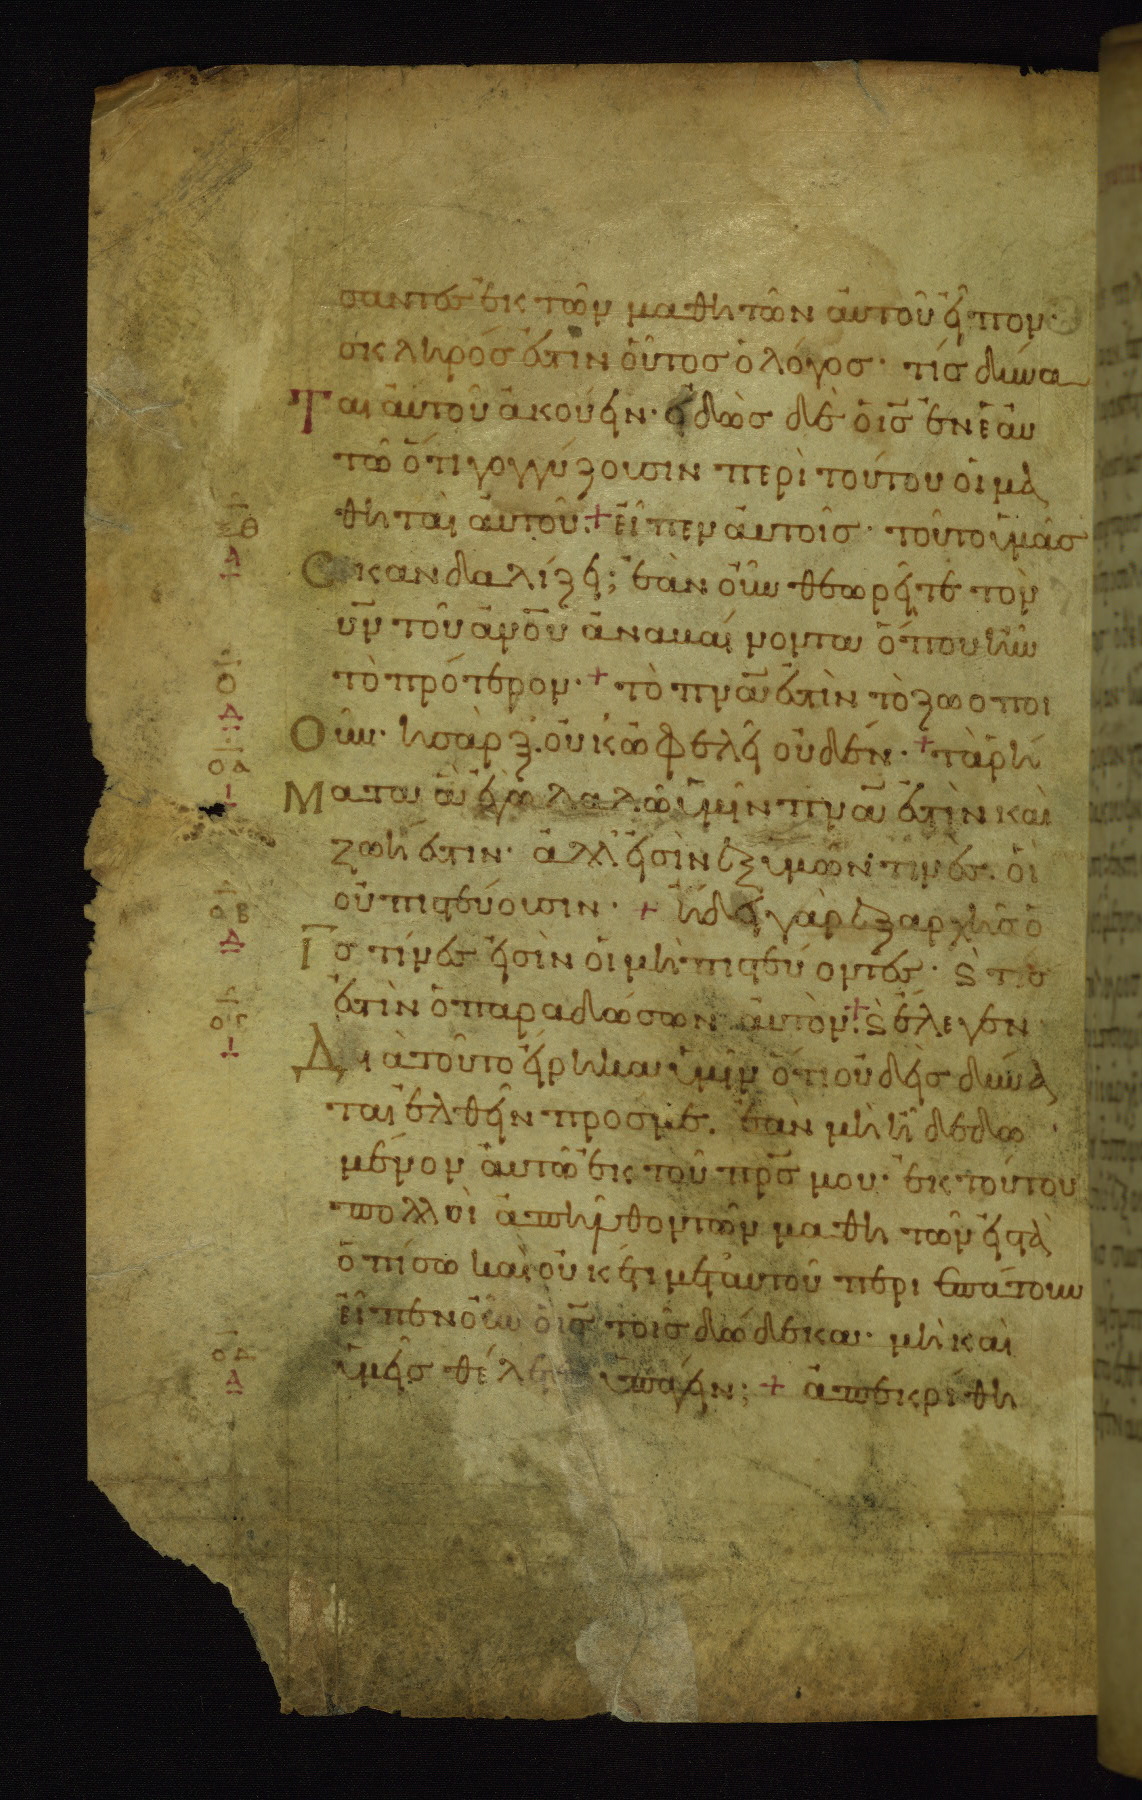 σαντες ἐκ τῶν μαθητῶν αὐτοῦ εἶπον·
σκληρός ἐστιν οὗτος ὁ λόγος· τίς δύνα
Ται αὐτοῦ ἀκούειν· εἰδὼς δὲ ὁ ις̅ ἐν ἑαυ
τῶ ὅτι γογγύζουσιν περὶ τούτου οἱ μα
θηταὶ αὐτοῦ. + εἶπεν αὐτοῖς· τοῦτο ὑμᾶς
ξθ
Δ
Σκανδαλίζει; ἐὰν οὖν θεωρεῖτε τὸν
υν̅ τοῦ ανο̅υ ἀναβαίνοντα ὅπου ἦν
ο
Δ
τὸ πρότερον· + τὸ πνα̅ ἐστὶν τὸ ζωοποι
Οῦν· ἡ σὰρξ οὐκ ὠφελεῖ οὐδέν· + τὰ ῥή
οα
Ι
Ματα ἃ ἐγὼ λαλῶ ὑμῖν πνα̅ ἐστὶν καὶ
ζωή ἐστιν· ἀλλ' εἰσὶν ἐξ ὑμῶν τινές. οἳ
οὐ πιστεύουσιν· + ἤδει γὰρ ἐξ αρχῆς ὁ
οβ
Δ
Ις̅ τίνες εἰσὶν οἱ μὴ πιστεύοντες· ϗ τίς
ἐστὶν ὁ παραδώσων αὐτόν. + ϗ ἔλεγεν
ογ
Ι
Διὰ τοῦτο εἴρηκα ὑμῖν ὅτι οὐδεὶς δύνα
ται ἐλθεῖν προς με. ἐὰν μὴ ἦ δεδο
μένον αὐτῶ ἐκ τοῦ πρς̅ μου· ἐκ τούτου
πολλοὶ ἀπῆλθον τῶν μαθητῶν εἰς τὰ
ὀπίσω καὶ οὐκέτι μετ' αὐτοῦ περιεπάτουν
εἶπεν οὖν ὁ ις̅ τοῖς δώδεκα· μὴ καὶ
οδ
Δ
ὑμεῖς θέλετε ὑπάγειν; + ἀπεκρίθη